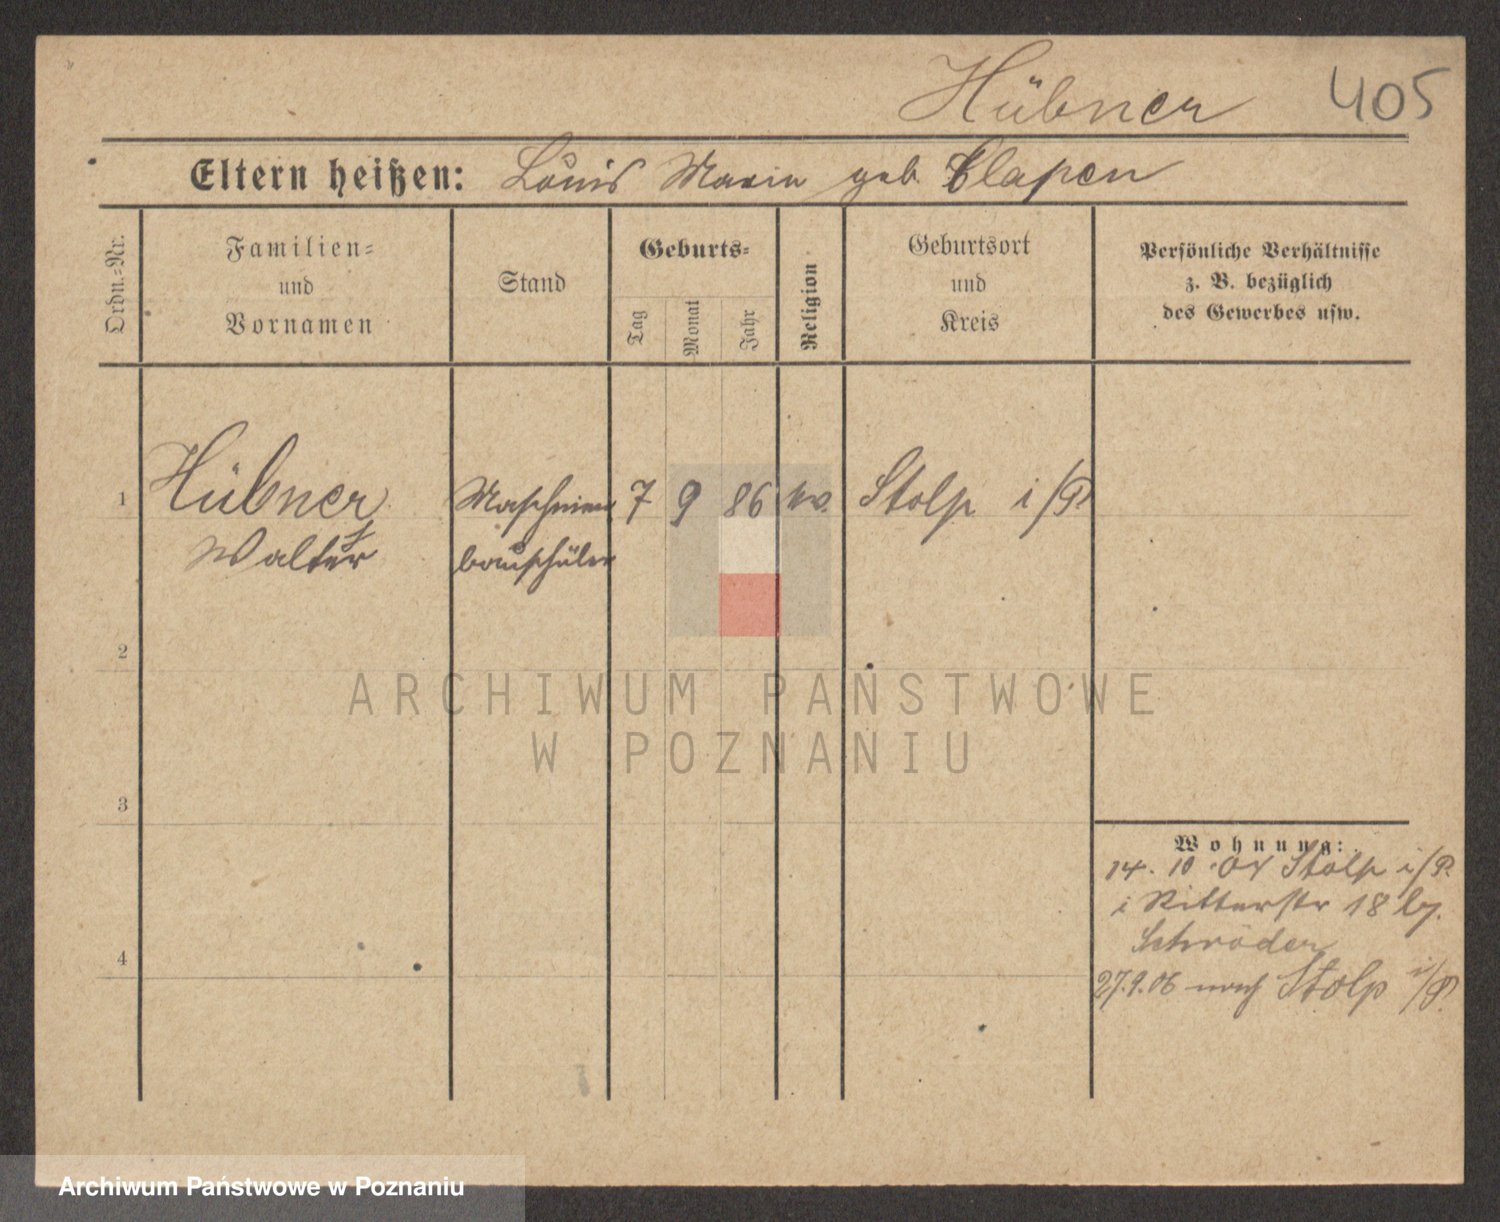 Hübner 405
Eltern heißen: Louis Marie geb. Clapen
Ordn.=Nr.
Familien=
und
Vornamen
Stand
Geburts=
Tag
Monat
Jahr
Religion
Geburtsort
und
Kreis
Persönliche Verhältnisse
z. B. bezüglich
des Gewerbes usw.
1 Hübner Maschinen 7 9 86 ev. Stolp i/P
Walter bauschüler
2
3
4
Wohnung:
14. 10. 04 Stolp i/P.
Ritterstr 18 by.
Schröder
27.9.06 nach Stolp i/P.
ARCHIWUM PAŃSTWOWE
W POZNANIU
Archiwum Państwowe w Poznaniu